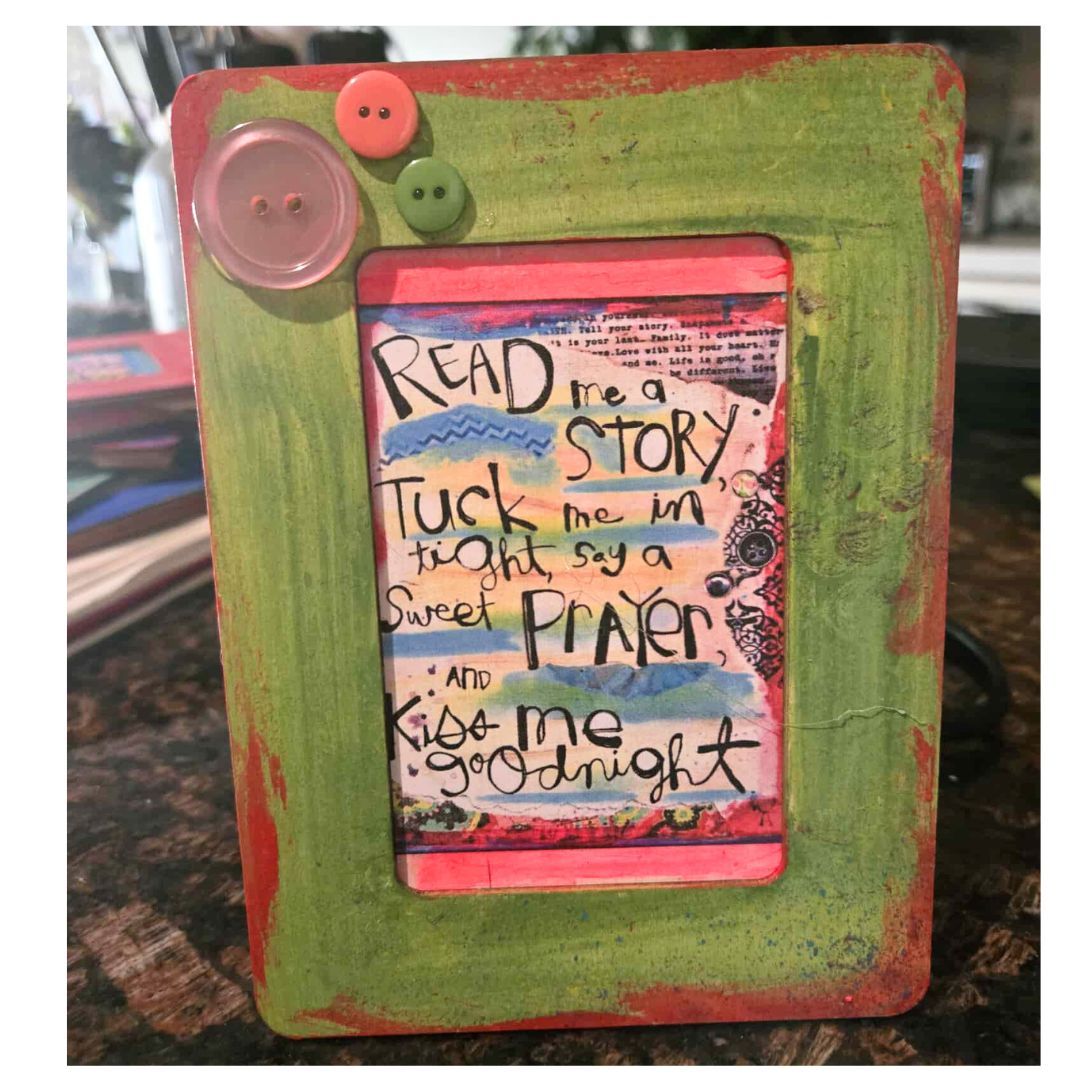 in yourself
Tell your story.
is your last. Family. It does matter
Love with all your heart.
and me. Life is good, oh
be different.
READ me a
STORY,
Tuck me in
tight, say a
Sweet PrAYer,
AND
Kiss me
goodnight.